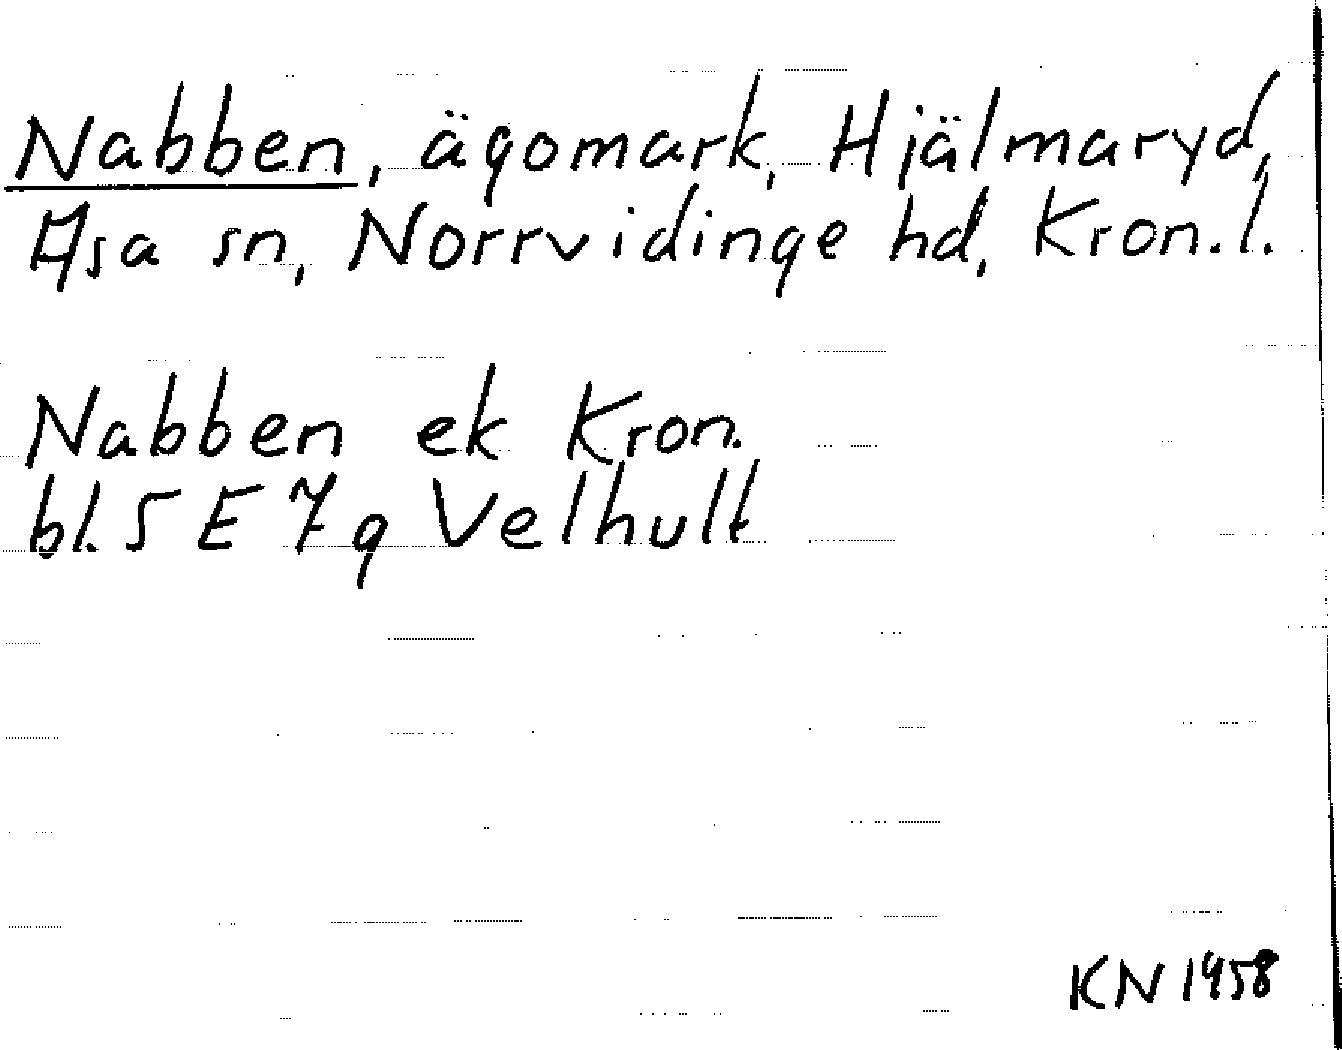 Nabben, ägomark, Hjälmaryd,
Asa sn, Norrvidinge hd, Kron. l.
Nabben ek Kron.
bl. 5 E 7 g Velhult
KN 1958